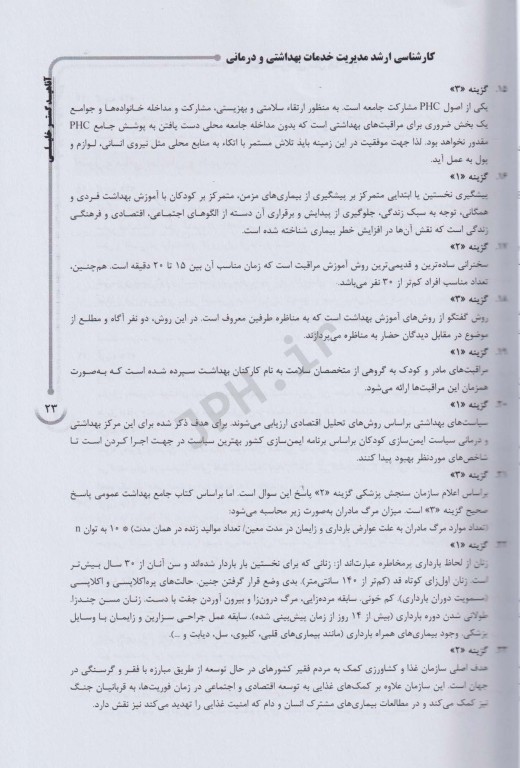 کارشناسی ارشد مدیریت خدمات بهداشتی و درمانی
۱۵. گزینه «۳»
یکی از اصول PHC مشارکت جامعه است. به منظور ارتقاء سلامتی و بهزیستی، مشارکت و مداخله خانواده‌ها و جوامع
یک بخش ضروری برای مراقبت‌های بهداشتی است که بدون مداخله جامعه محلی دست یافتن به پوشش جامع PHC
مقدور نخواهد بود. لذا جهت موفقیت در این زمینه باید تلاش مستمر با اتکاء به منابع محلی مثل نیروی انسانی، لوازم و
پول به عمل آید.
۱۶. گزینه «۱»
پیشگیری نخستین یا ابتدایی متمرکز بر پیشگیری از بیماری‌های مزمن، متمرکز بر کودکان با آموزش بهداشت فردی و
همگانی، توجه به سبک زندگی، جلوگیری از پیدایش و برقراری آن دسته از الگوهای اجتماعی، اقتصادی و فرهنگی
زندگی است که نقش آن‌ها در افزایش خطر بیماری شناخته شده است.
۱۷. گزینه «۲»
سخنرانی ساده‌ترین و قدیمی‌ترین روش آموزش مراقبت است که زمان مناسب آن بین ۱۵ تا ۲۰ دقیقه است. هم‌چنین،
تعداد مناسب افراد کم‌تر از ۳۰ نفر می‌باشد.
۱۸. گزینه «۳»
روش گفتگو از روش‌های آموزش بهداشت است که به مناظره طرفین معروف است. در این روش، دو نفر آگاه و مطلع از
موضوع در مقابل دیدگان حضار به مناظره می‌پردازند.
۱۹. گزینه «۱»
مراقبت‌های مادر و کودک به گروهی از متخصصان سلامت به نام کارکنان بهداشت سپرده شده است که به‌صورت
همزمان این مراقبت‌ها ارائه می‌شود.
۲۰. گزینه «۱»
سیاست‌های بهداشتی براساس روش‌های تحلیل اقتصادی ارزیابی می‌شوند. برای هدف ذکر شده برای این مرکز بهداشتی
و درمانی سیاست ایمن‌سازی کودکان براساس برنامه ایمن‌سازی کشور بهترین سیاست در جهت اجرا کردن است تا
شاخص‌های موردنظر بهبود پیدا کنند.
۲۱. گزینه «۳»
براساس اعلام سازمان سنجش پزشکی گزینه «۲» پاسخ این سوال است. اما براساس کتاب جامع بهداشت عمومی پاسخ
صحیح گزینه «۳» است. میزان مرگ مادران به‌صورت زیر محاسبه می‌شود:
(تعداد موارد مرگ مادران به علت عوارض بارداری و زایمان در مدت معین/ تعداد موالید زنده در همان مدت) * ۱۰ به توان n
۲۲. گزینه «۱»
زنان از لحاظ بارداری پرمخاطره عبارت‌اند از: زنانی که برای نخستین بار باردار شده‌اند و سن آنان از ۳۰ سال بیش‌تر
است. زنان اول‌زای کوتاه قد (کم‌تر از ۱۴۰ سانتی‌متر). بدی وضع قرار گرفتن جنین. حالت‌های پره‌اکلامپسی و اکلامپسی
(مسمومیت دوران بارداری). کم خونی. سابقه مرده‌زایی، مرگ درون‌زا و بیرون آوردن جفت با دست. زنان مسن چندزا.
طولانی شدن دوره بارداری (بیش از ۱۴ روز از زمان پیش‌بینی شده). سابقه عمل جراحی سزارین و زایمان با وسایل
پزشکی. وجود بیماری‌های همراه بارداری (مانند بیماری‌های قلبی، کلیوی، سل، دیابت و ...).
۲۳. گزینه «۲»
هدف اصلی سازمان غذا و کشاورزی کمک به مردم فقیر کشورهای در حال توسعه از طریق مبارزه با فقر و گرسنگی در
جهان است. این سازمان علاوه بر کمک‌های غذایی به توسعه اقتصادی و اجتماعی در زمان فوریت‌ها، به قربانیان جنگ
نیز کمک می‌کند و در مطالعات بیماری‌های مشترک انسان و دام که امنیت غذایی را تهدید می‌کند نیز نقش دارد.
۲۳
JPH.ir